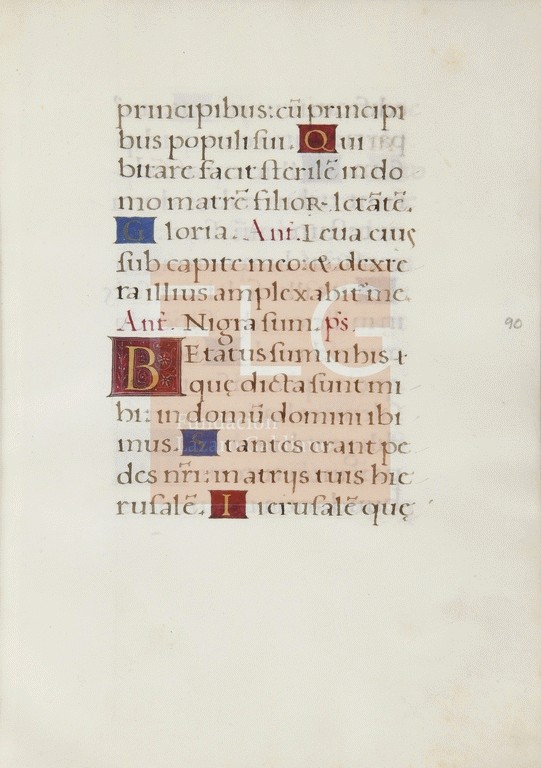 principibus: cū principi
bus populi sui. Qui
bitare facit sterilē in do
mo matrē filior letātē.
Gloria. Ant. Leua eiuς
sub capite meo: & dexte
ra illius amplexabit me.
Ant. Nigra sum. ps.
BEtatus sum in his
quę dicta sunt mi
hi: in domū domini ibi
mus. Stantes erant pe
des nr̄i: in atrijs tuis hie
rusalē. Ierusalē quę
90
FLG
Fundación
Lázaro Galdiano